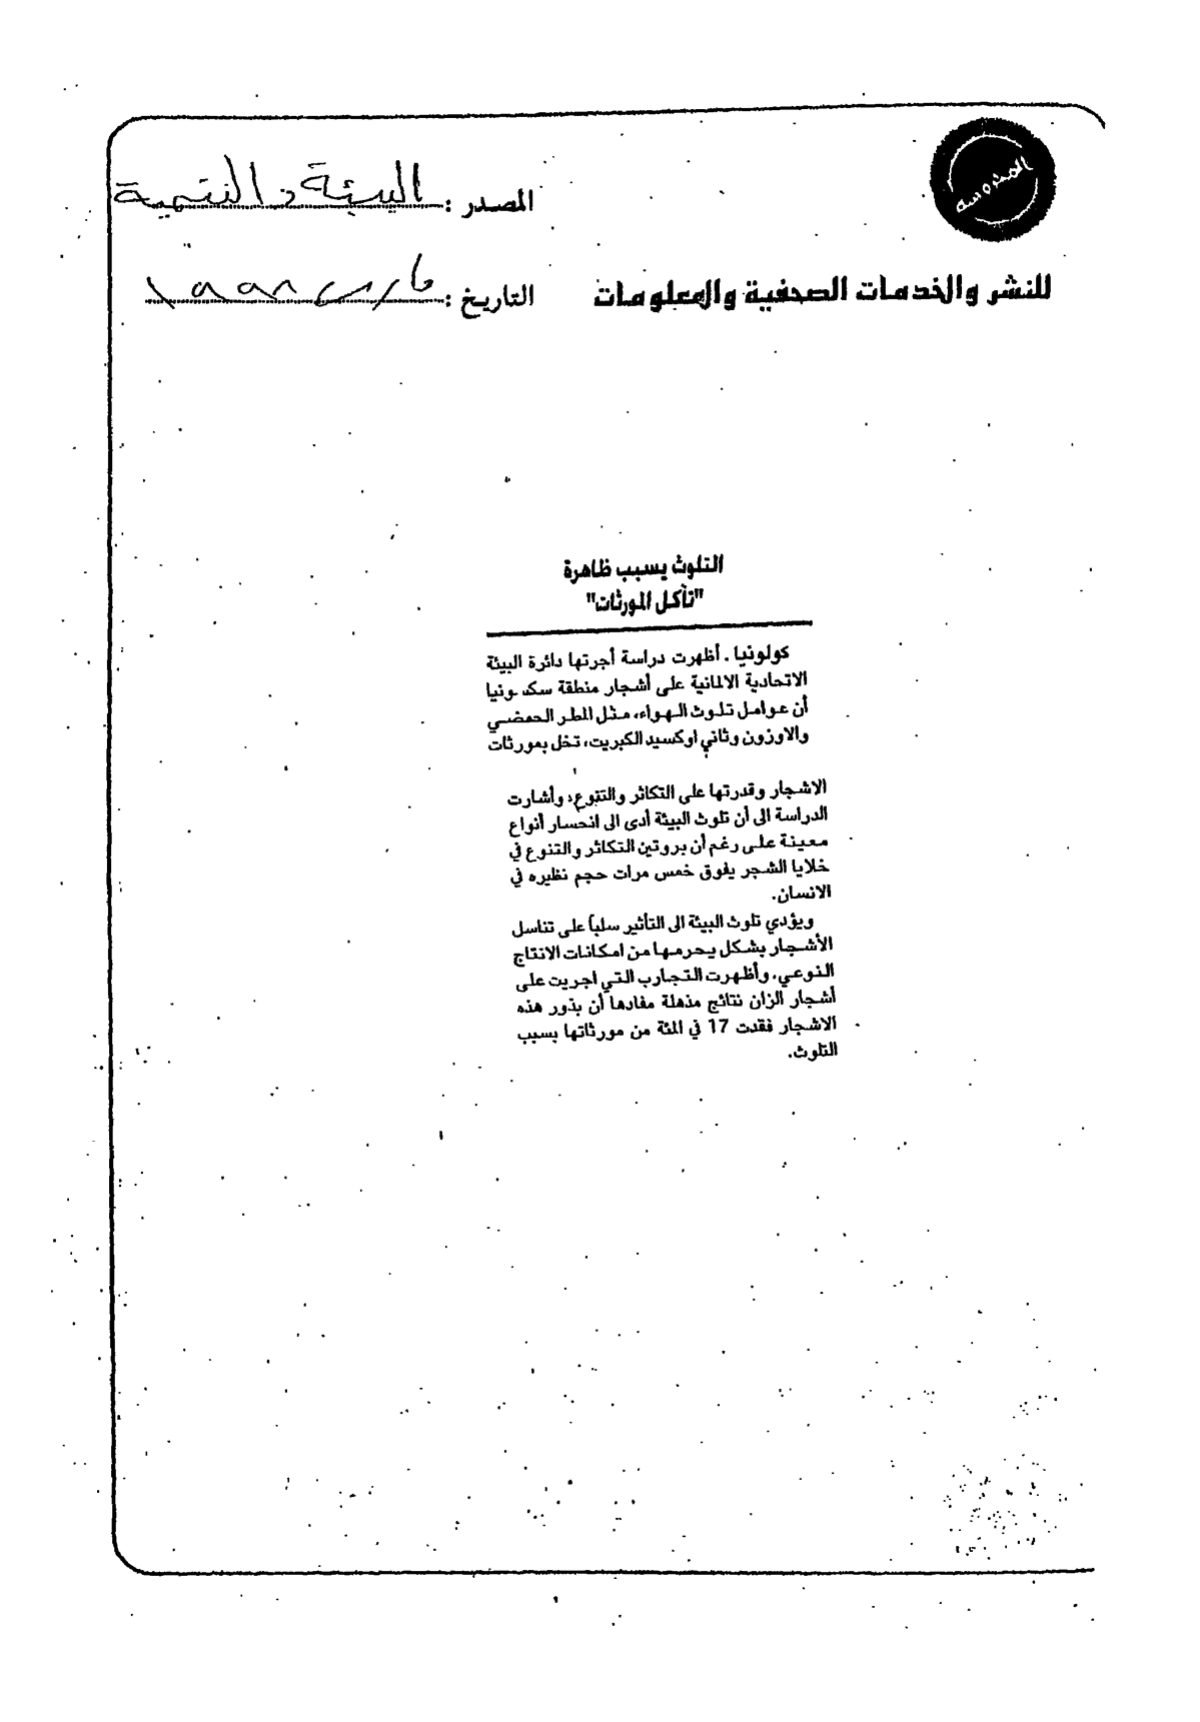 المحروسة
المصدر : البيئة والتنمية
للنشر والخدمات الصحفية والمعلومات
التاريخ : مارس ١٩٩٨
التلوث يسبب ظاهرة
"تأكل المورثات"
كولونيا . أظهرت دراسة أجرتها دائرة البيئة
الاتحادية الالمانية على أشجار منطقة سكسونيا
أن عوامل تلوث الهواء، مثل المطر الحمضي
والاوزون وثاني اوكسيد الكبريت، تخل بمورثات
الاشجار وقدرتها على التكاثر والتنوع. وأشارت
الدراسة الى أن تلوث البيئة أدى الى انحسار أنواع
معينة على رغم أن بروتين التكاثر والتنوع في
خلايا الشجر يفوق خمس مرات حجم نظيره في
الانسان.
ويؤدي تلوث البيئة الى التأثير سلباً على تناسل
الأشجار بشكل يحرمها من امكانات الانتاج
النوعي. وأظهرت التجارب التي اجريت على
أشجار الزان نتائج مذهلة مفادها أن بذور هذه
الاشجار فقدت 17 في المئة من مورثاتها بسبب
التلوث.